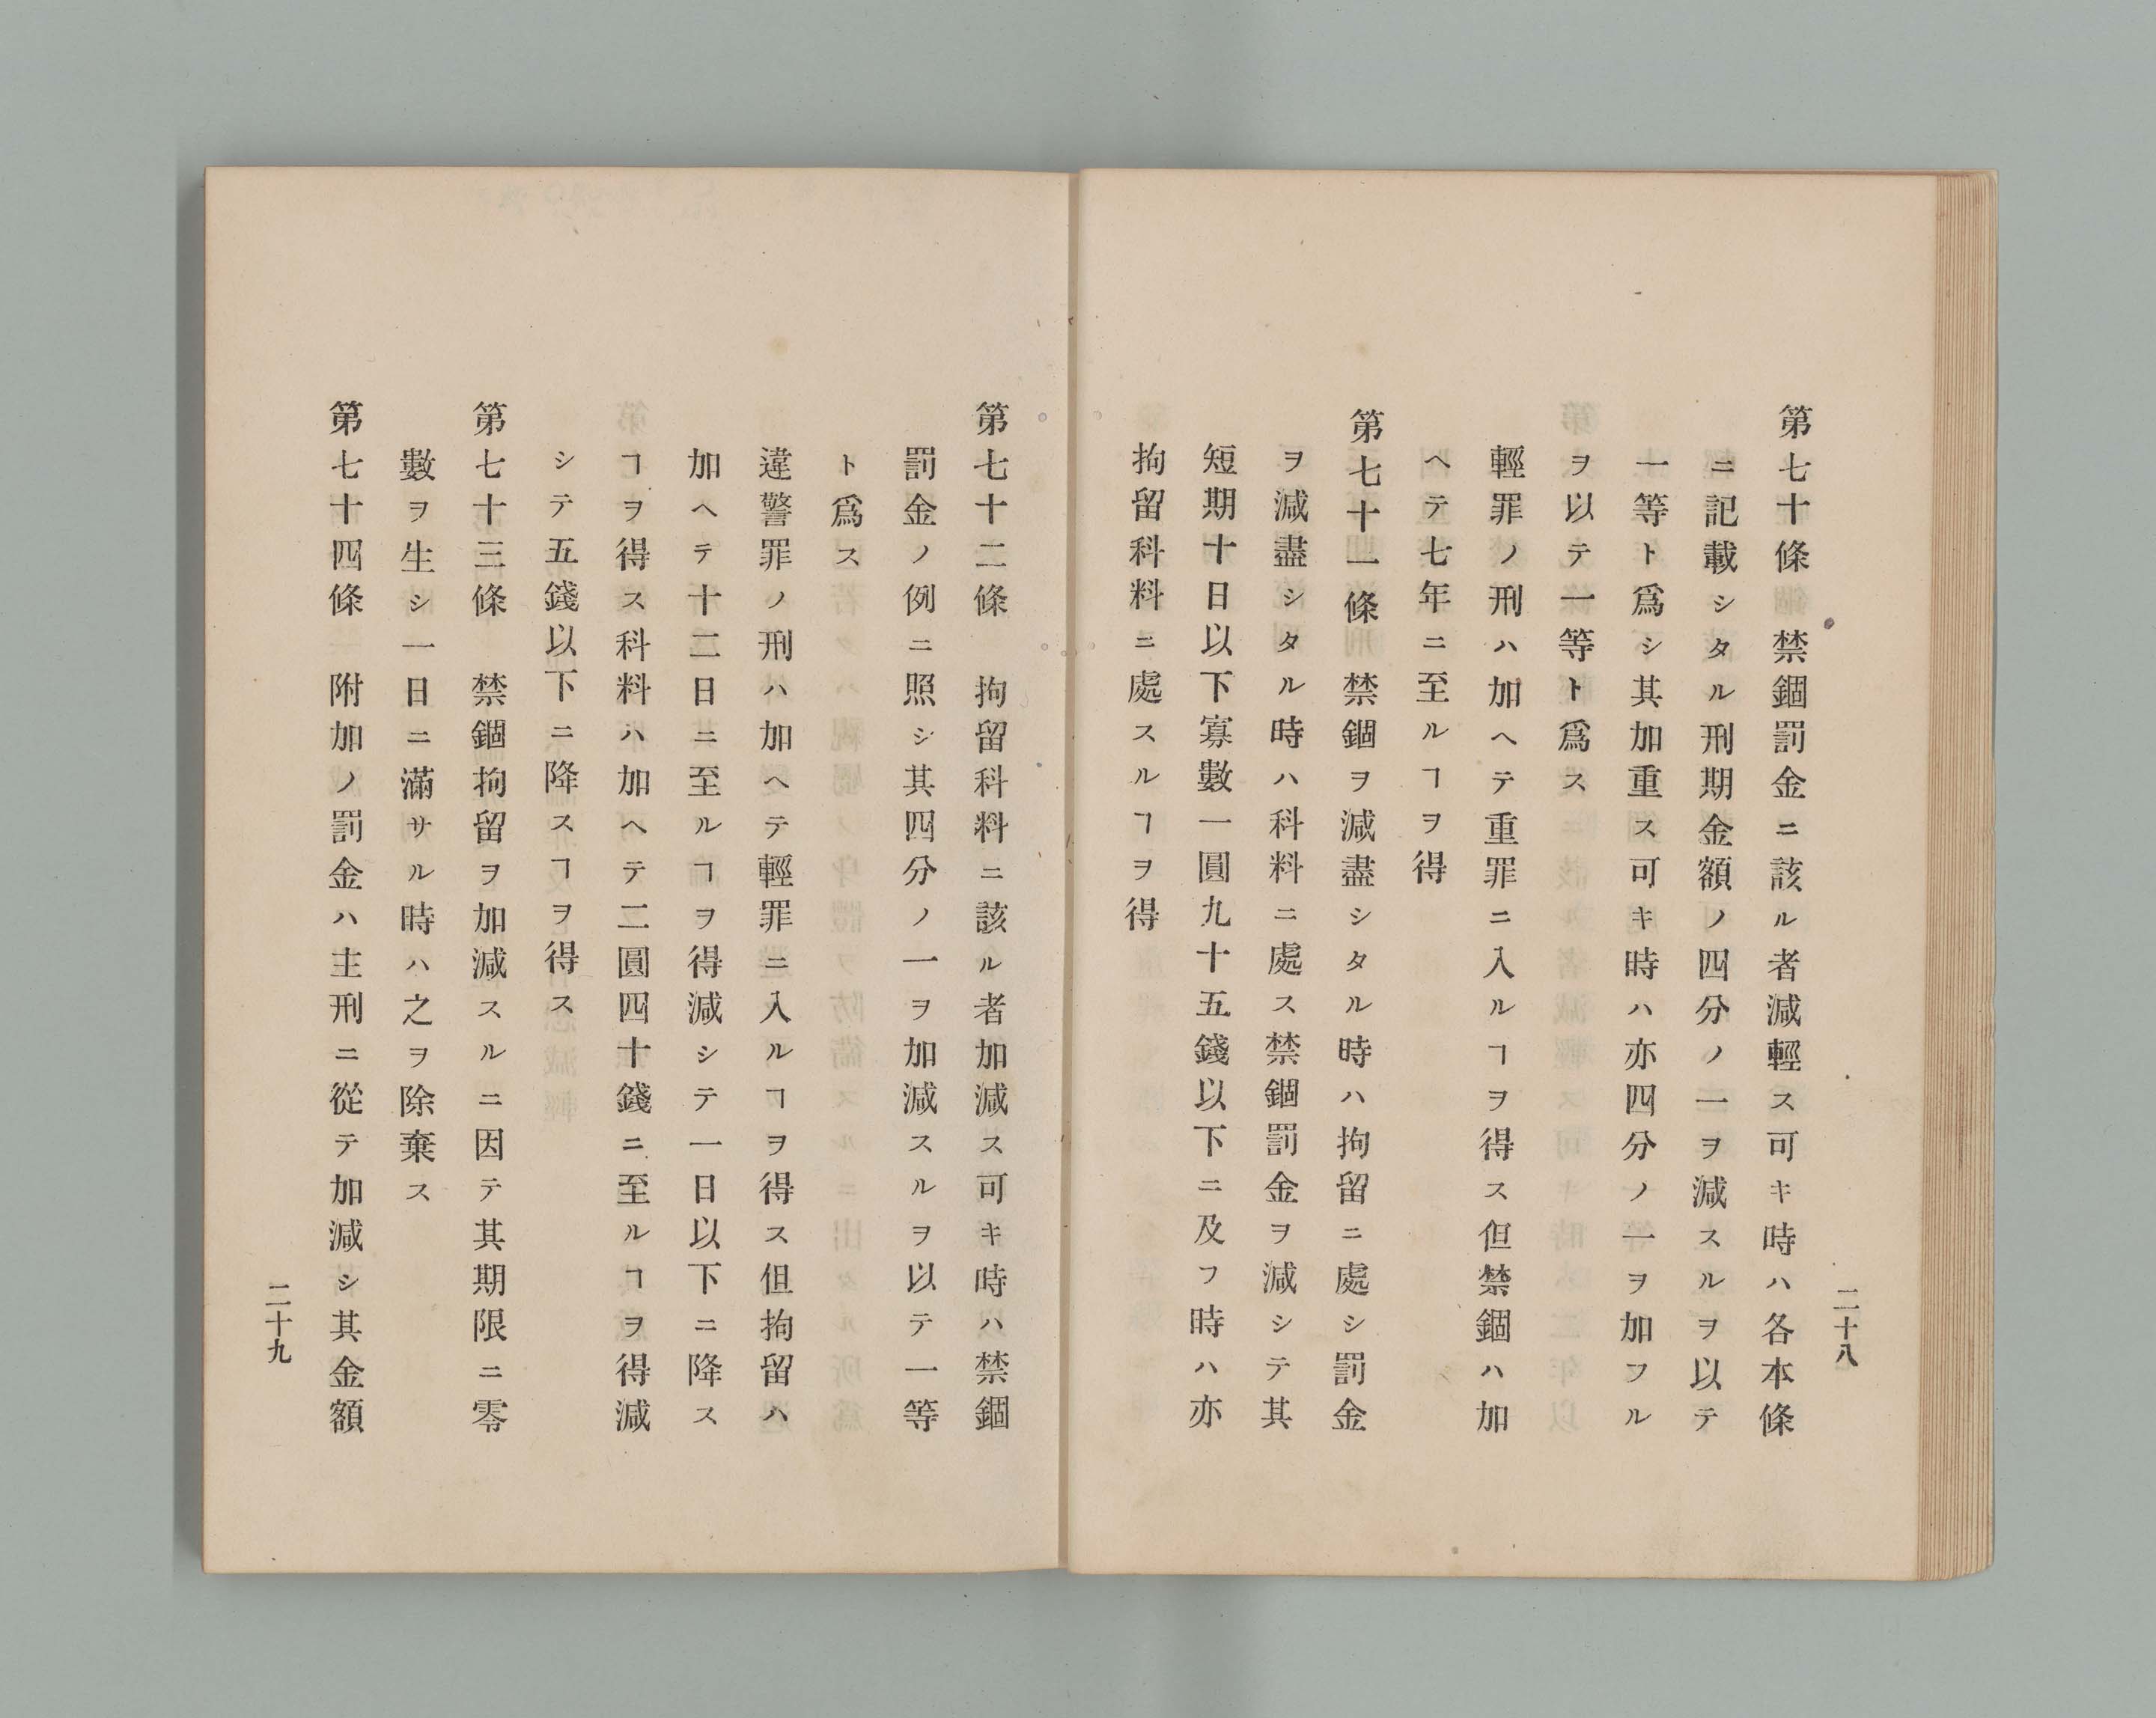 第七十條 禁錮罰金ニ該ル者減輕ス可キ時ハ各本條
ニ記載シタル刑期金額ノ四分ノ一ヲ減スルヲ以テ
一等ト爲シ其加重ス可キ時ハ亦四分ノ一ヲ加フル
ヲ以テ一等ト爲ス
輕罪ノ刑ハ加ヘテ重罪ニ入ルヿヲ得ス但禁錮ハ加
ヘテ七年ニ至ルヿヲ得
第七十一條 禁錮ヲ減盡シタル時ハ拘留ニ處シ罰金
ヲ減盡シタル時ハ科料ニ處ス禁錮罰金ヲ減シテ其
短期十日以下寡數一圓九十五錢以下ニ及フ時ハ亦
拘留科料ニ處スルヿヲ得
二十八
第七十二條 拘留科料ニ該ル者加減ス可キ時ハ禁錮
罰金ノ例ニ照シ其四分ノ一ヲ加減スルヲ以テ一等
ト爲ス
違警罪ノ刑ハ加ヘテ輕罪ニ入ルヿヲ得ス但拘留ハ
加ヘテ十二日ニ至ルヿヲ得減シテ一日以下ニ降ス
ヿヲ得ス科料ハ加ヘテ二圓四十錢ニ至ルヿヲ得減
シテ五錢以下ニ降スヿヲ得ス
第七十三條 禁錮拘留ヲ加減スルニ因テ其期限ニ零
數ヲ生シ一日ニ滿サル時ハ之ヲ除棄ス
第七十四條 附加ノ罰金ハ主刑ニ從テ加減シ其金額
二十九